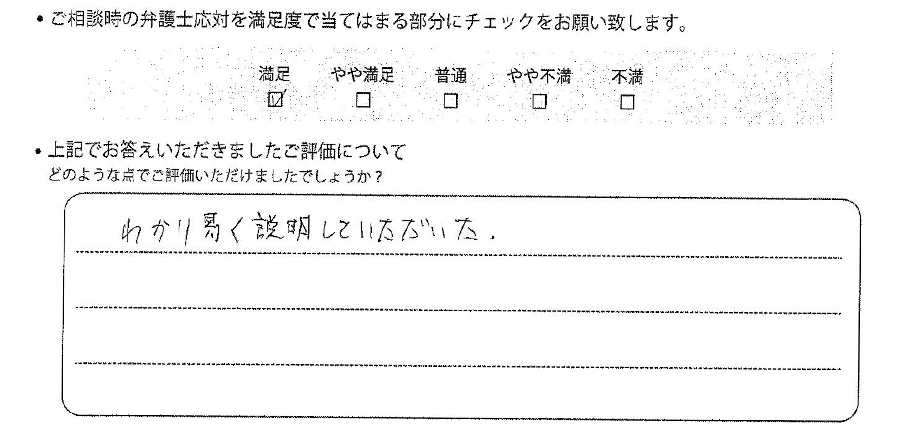 ・ご相談時の弁護士応対を満足度で当てはまる部分にチェックをお願い致します。
満足 やや満足 普通 やや不満 不満
☑ □ □ □ □
・上記でお答えいただきましたご評価について
どのような点でご評価いただけましたでしょうか？
わかり易く説明していただいた.